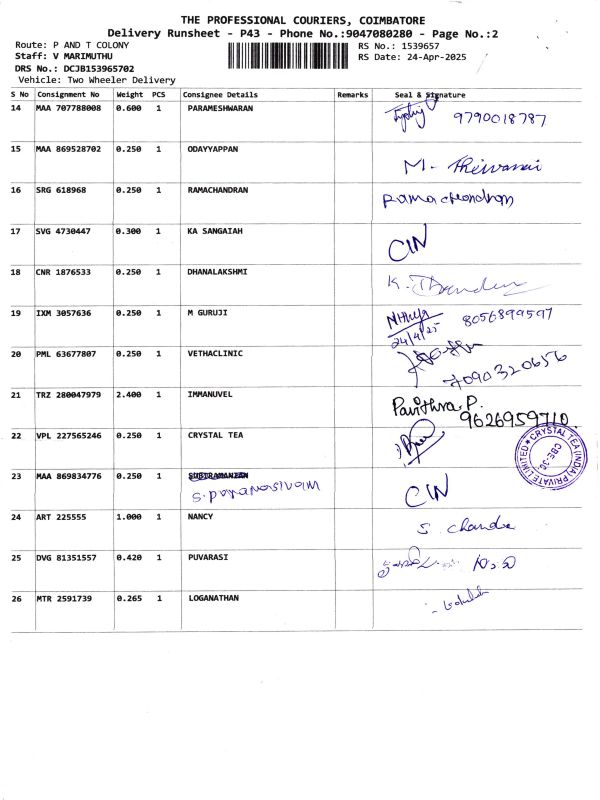 THE PROFESSIONAL COURIERS, COIMBATORE
Delivery Runsheet - P43 - Phone No.:9047080280 - Page No.:2
Route: P AND T COLONY RS No.: 1539657
Staff: V MARIMUTHU RS Date: 24-Apr-2025
DRS No.: DCJB153965702
Vehicle: Two Wheeler Delivery
S No Consignment No Weight PCS Consignee Details Remarks Seal & Signature
14 MAA 707788008 0.600 1 PARAMESHWARAN 9790018787
15 MAA 869528702 0.250 1 ODAYYAPPAN M-
16 SRG 618968 0.250 1 RAMACHANDRAN
17 SVG 4730447 0.300 1 KA SANGAIAH CIN
18 CNR 1876533 0.250 1 DHANALAKSHMI K.
19 IXM 3057636 0.250 1 M GURUJI 8056899597
24/4/25
20 PML 63677807 0.250 1 VETHACLINIC
7090320656
21 TRZ 280047979 2.400 1 IMMANUVEL Pavithra.P.
9626959710.
22 VPL 227565246 0.250 1 CRYSTAL TEA CRYSTAL TEA (INDIA) PRIVATE LIMITED
23 MAA 869834776 0.250 1 SUBTRAMANIAN CIN
24 ART 225555 1.000 1 NANCY S. Chandra
25 DVG 81351557 0.420 1 PUVARASI
26 MTR 2591739 0.265 1 LOGANATHAN